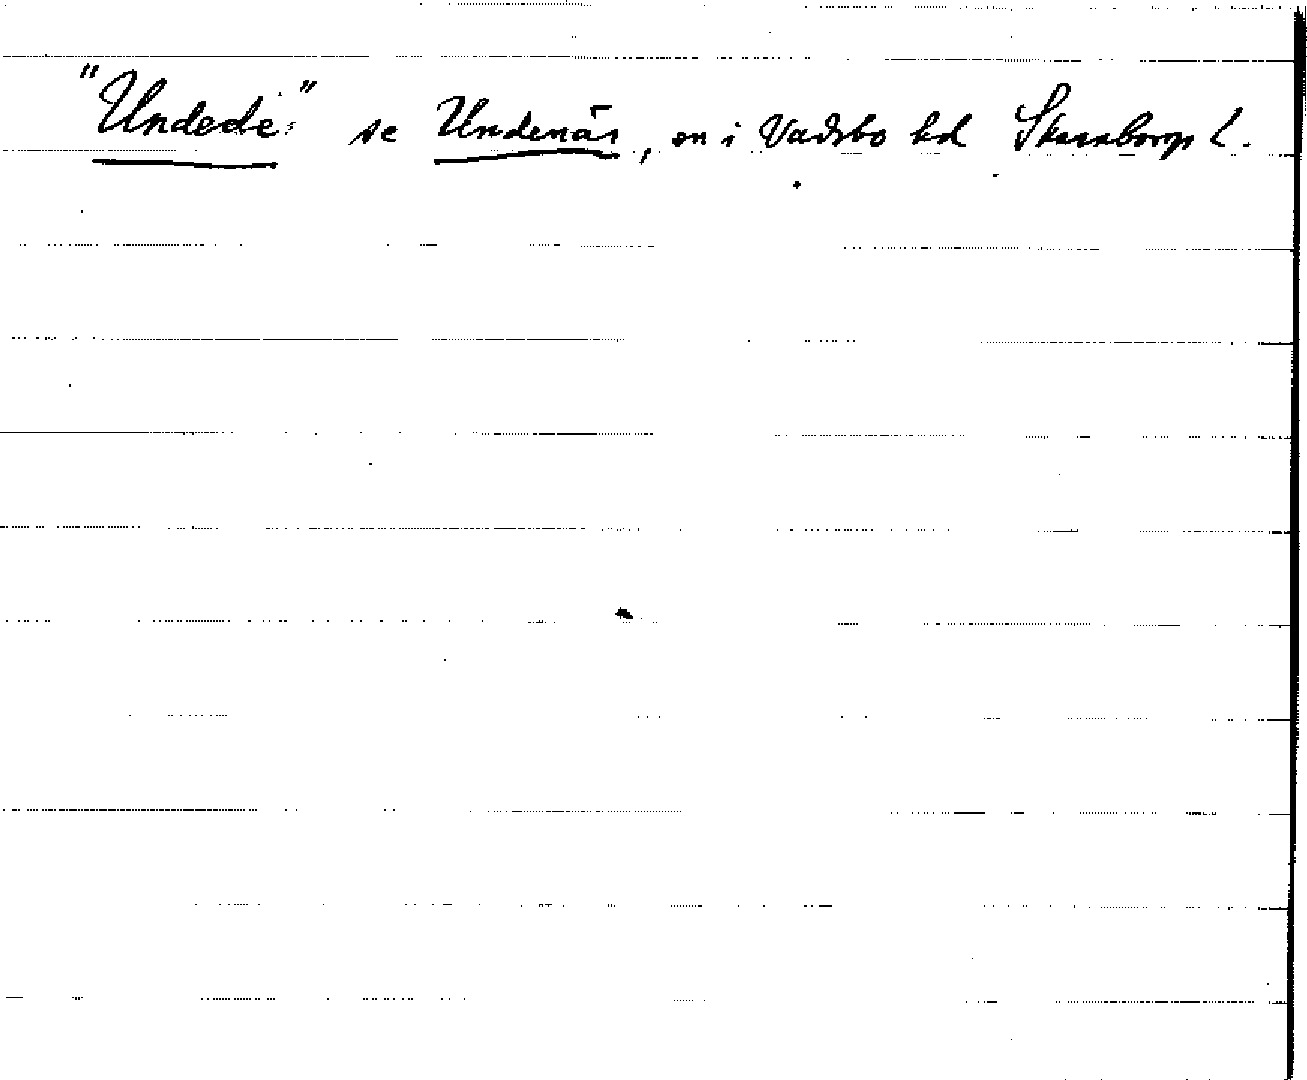 "Undede:" se Undenäs, sn i Vadsbo hd Skaraborgs L.